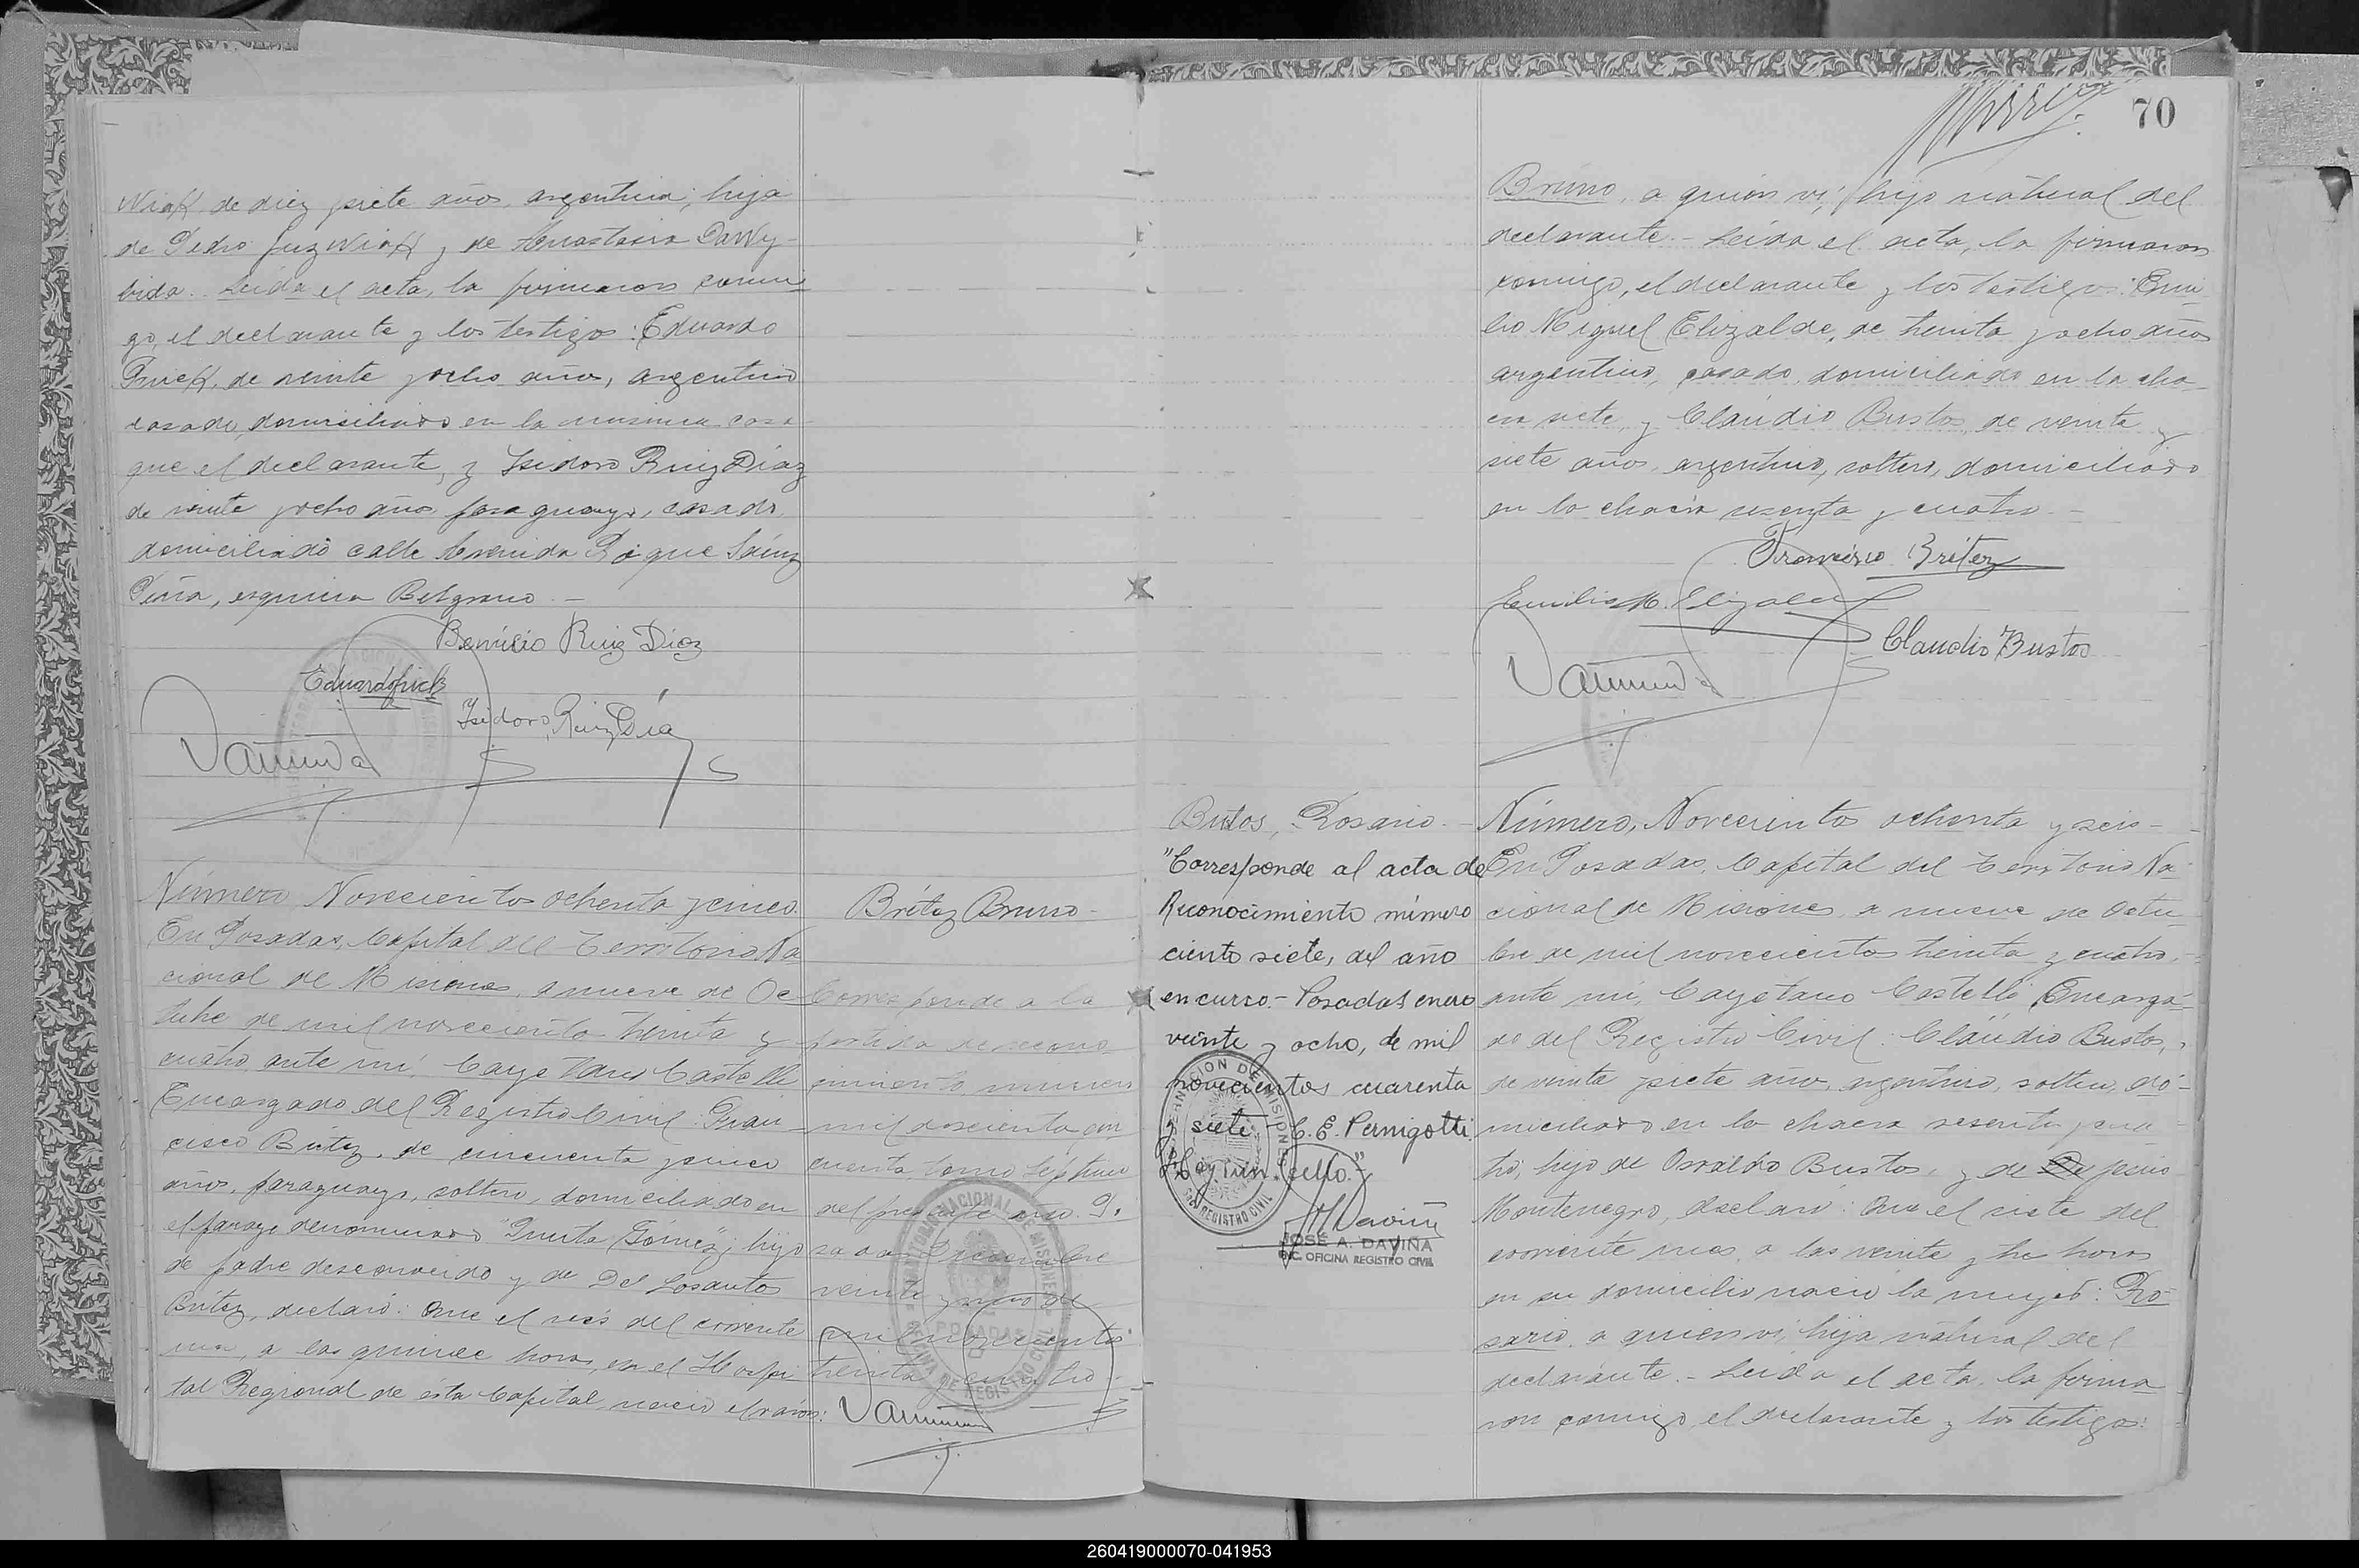 de diez y siete años, argentina; hija
de Pedro y de Anastacia
Leida el acta, la firmaron conmi
go, el declarante y los testigos: Eduardo
de veinte y ocho años, argentino
casado, domiciliado en la misma casa
que el declarante, y Isidoro Ruiz Díaz
de veinte y ocho años, paraguayo, casado,
domiciliado calle Avenida Roque Sáenz
Peña, esquina Belgrano.-
Ruiz Díaz
Isidoro Ruiz Día
Número Novecientos ochenta y cinco.
En Posadas, Capital del Territorio Na
cional de Misiones, a nueve de Oc
tubre de mil novecientos treinta y
cuatro, ante mi, Cayetano Castelli
Encargado del Registro Civil: Fran-
cisco Britez, de cincuenta y cinco
años, paraguayo, soltero, domiciliado en
el paraje denominado "Punta Gómez"; hijo
de padre desconocido y de De los santos
Britez, declaró: Que el seis del corriente
mes, a las quince horas, en el Hospi
tal Regional de esta Capital, nació el varón:
Britez Bruno-
Corresponde a la
partida de recono
cimiento, número
mil doscientos cin
cuenta, tomo septimo
del presente año. Po
sadas Diciembre
veinte y uno de
mil novecientos
treinta y cuatro.-
GOBERNACION DE MISIONES
POSADAS
OFICINA DE REGISTRO CIVIL
70
Bruno, a quién vi, hijo natural del
declarante.- Leida el acta, la firmaron
conmigo, el declarante y los testigos: Emi
lio Miguel Elizalde, de treinta y ocho años
argentino, casado, domiciliado en la cha-
cra siete, y Claudio Bustos, de veinte y
siete años, argentino, soltero, domiciliado
en la chacra sesenta y cuatro.-
Francisco Britez
Emilio M. Elizalde
Claudio Bustos
Bustos, Rosario.-
"Corresponde al acta de
Reconocimiento número
ciento siete, del año
en curso.- Posadas enero
veinte y ocho, de mil
novecientos cuarenta
y siete.- C. E. Pernigotti
Hay un sello."-
GOBERNACION DE MISIONES
REGISTRO CIVIL
JOSÉ A. DAVIÑA
ENC. OFICINA REGISTRO CIVIL
Número, Novecientos ochenta y seis-
En Posadas, Capital del Territorio Na
cional de Misiones, a nueve de Octu-
bre de mil novecientos treinta y cuatro,-
ante mi, Cayetano Castelli, Encarga-
do del Registro Civil: Claudio Bustos,
de veinte y siete años, argentino, soltero, do-
miciliado en la chacra sesenta y cua-
tro, hijo de Osvaldo Bustos, y de
Montenegro, declaró: Que el siete del
corriente mes, a las veinte y tres horas
en su domicilio nació la mujer: Ro-
sario, a quien vi, hija natural del
declarante.- Leida el acta, la firma-
ron conmigo, el declarante y los testigos:
260419000070-041953